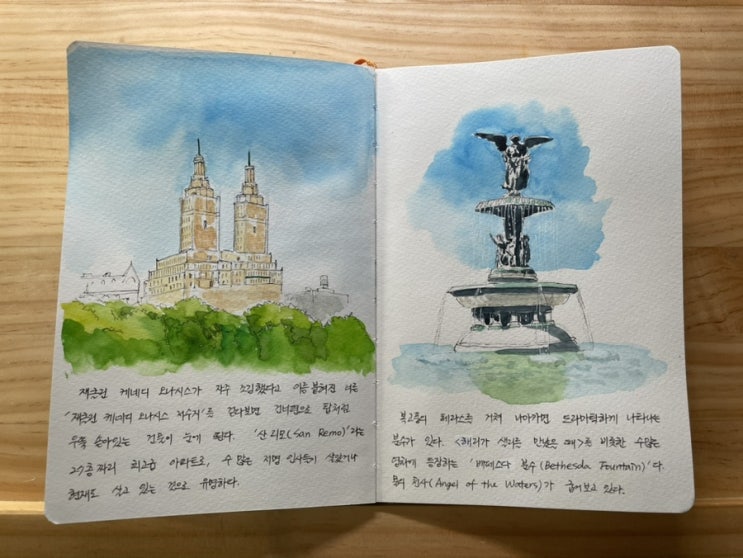 재클린 케네디 오나시스가 자주 조깅했다고 이름 붙여진 너른
'재클린 케네디 오나시스 저수지'를 걷다보면 건너편으로 탑처럼
우뚝 솟아있는 건물이 눈에 띈다. '산 리모(San Remo)'라는
27층짜리 최고급 아파트로, 수많은 저명 인사들이 살았거나
현재도 살고 있는 것으로 유명하다.
테라스를 거쳐 나아가면 드라마틱하게 나타나는
분수가 있다. <해리가 샐리를 만났을 때>를 비롯한 수많은
영화에 등장하는 '베데스다 분수(Bethesda Fountain)'다.
물의 천사(Angel of the Waters)가 굽어보고 있다.